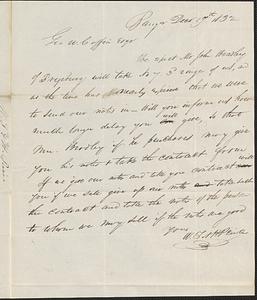 Bangor Decr 17th 1832
Geo W. Coffin Esqr
We expect Mr John Bradley
of Fryeburg will take No 4 3 range of us, and
as the time has nearly expired that we were
to send our notes in - Will you inform us how
much longer delay you will give, so that
Mr. Bradley if he purchases may give
you his notes & take the contract from
you
If we give our notes and take your contract will
you if we sell give up our notes and take back
the contract and take the notes of the person
to whom we may sell if the notes are good
Yours
W.